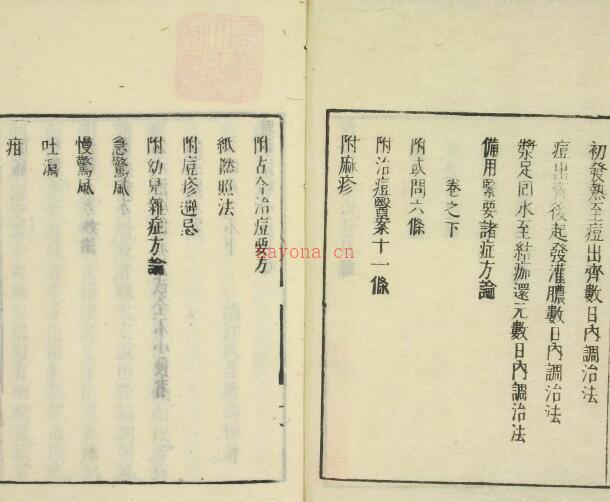 初發熱至痘出齊數日內調治法
痘出齊後起發灌膿數日內調治法
漿足囘水至結痂還元數日內調治法
備用緊要諸症方論
卷之下
附或問六條
附治痘醫案十一條
附麻疹
附古今治痘要方
紙撚照法
附痘疹避忌
附幼兒雜症方論
急驚風
慢驚風
吐瀉
疳
nayona.cn